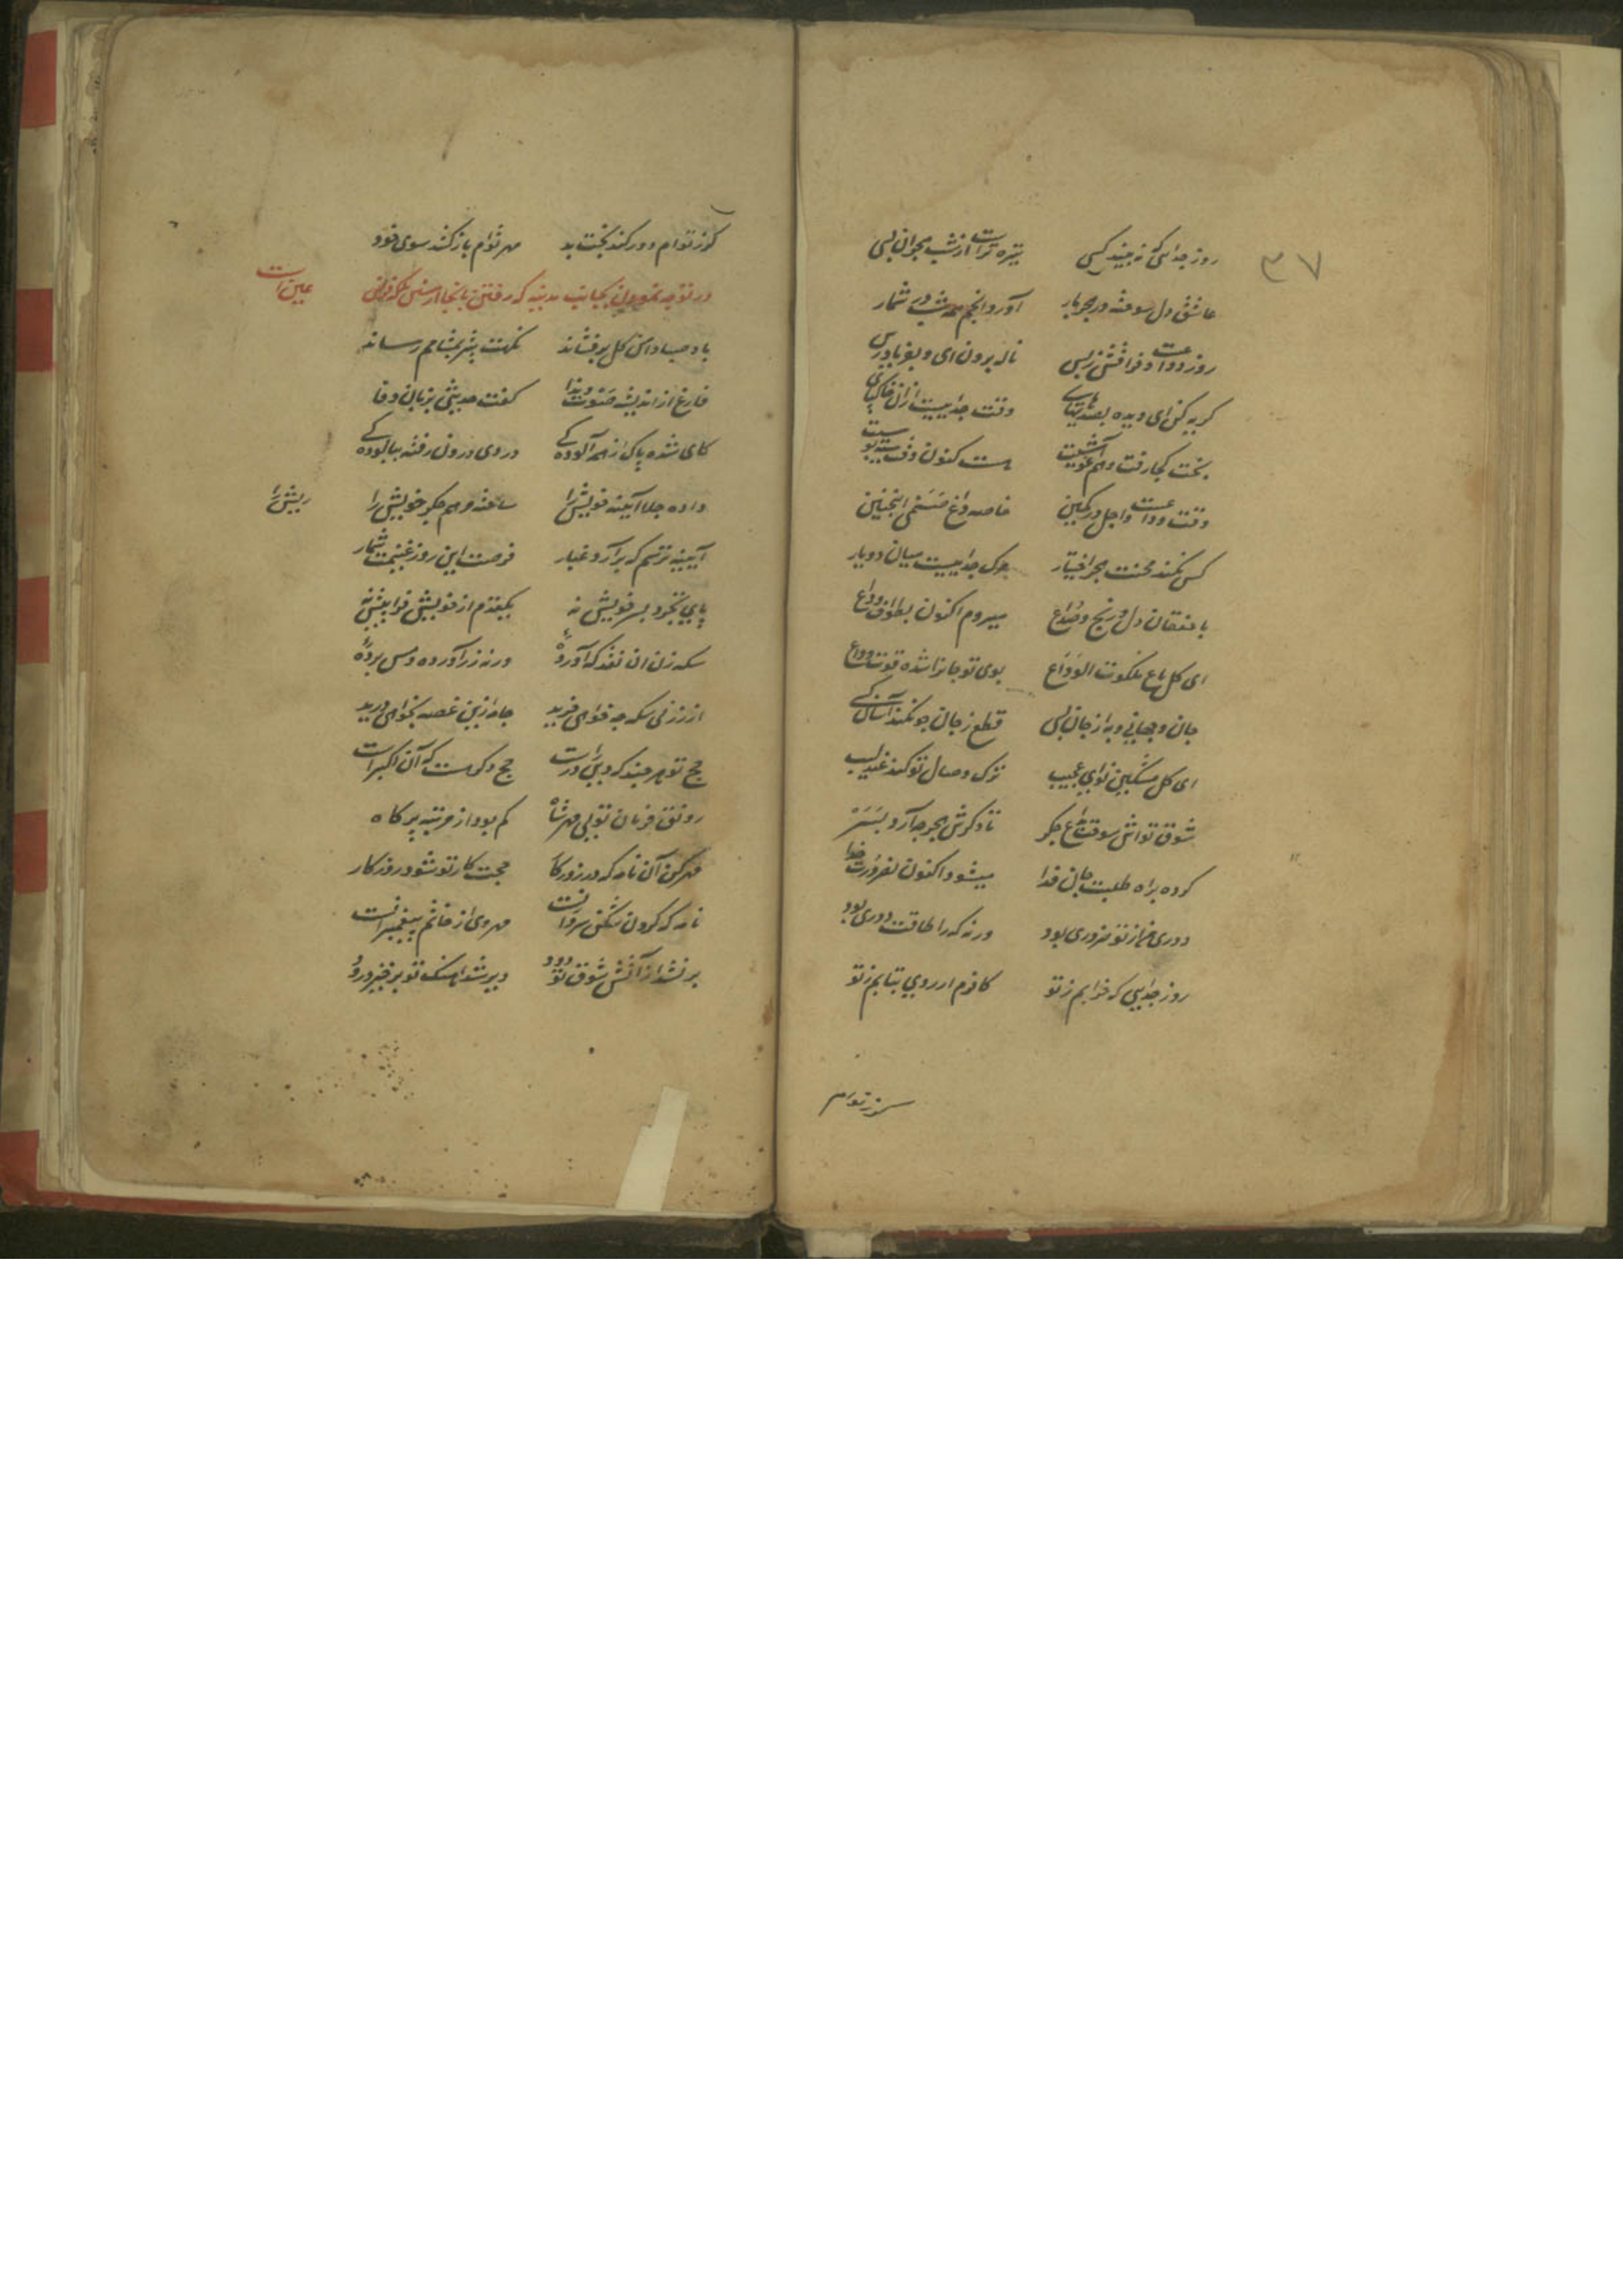 ۳۷
روز جدائی که نه بیند کسی تیره تراست از شب هجران بسی
عاشق دل سوخته در هجر یار آورد انجم همه شب در شمار
روز وداعست و فراقش ز پس ناله برون ای و بفریاد رس
گریه کن ای دیده بصد های های وقت جداییست ازان خاکپای
بخت کجا رفت و هم آغوشیست هست کنون وقت
وقت وداعست و اجل در کمین خاصه وداع صنمی اینچنین
کس نکند محنت هجر اختیار مرگ جداییست میان دو یار
با خفقان دل و رنج و صداع میروم اکنون بطواف وداع
ای گل باغ ملکوت الوداع بوی تو جانرا شده قوت وداع
جان و جهانی و به از جان بسی قطع ز جان چو نکند آسان کسی
ای گل مشکین نوای عجیب ترک وصال تو کند عندلیب
شوق تو اتش سوخت داغ جگر تا دگرش هجر چه آرد بسر
کرده براه طلبت جان فدا میشود اکنون بضرورت جدا
دوری من از تو ضروری بود ورنه که را طاقت دوری بود
روز جدایی که خرابم ز تو کافرم ار روی بتابم ز تو
گر ز توام
گر ز توام دور کند بخت بد مهر توام باز کشد سوی خود
در توجه نمودن بجانب مدینه که رفتن بانجا از سنن بلکه فرض عین است
باد صبا دامن گل برفشاند نکهت یثرب بمشامم رساند
فارغ از اندیشه صوت و ندا گفت حدیثی بزبان وفا
کای شده پاک از همه آلودگی در وی درون رفته بپالودگی
داده جلا آینه خویش را ساخته مرهم جگر ریش را
آیینه ترسم که برآرد غبار فرصت این روز غنیمت شمار
پای بخرد بسر خویش نه یکقدم از خویش فراپیش نه
سکه زن ان نقد که آورده ورنه زر آورده و مس برده
از زر بی سکه چه خواهی خرید جامه ازین غصه بخواهی درید
حج تو هر چند که در پی درست حج دگر هست که آن اکبرست
رونق فرمان تو بی مهر شاه کم بود از مرتبه پر کاه
مهر کن آن نامه که در روزگار حجت کار تو شود روز کار
نامه که گردون شکن سروانست مهر وی از خاتم پیغمبرانست
بر نشد از آتش شوق تو دود دیر شد اهنگ تو برخیز زود